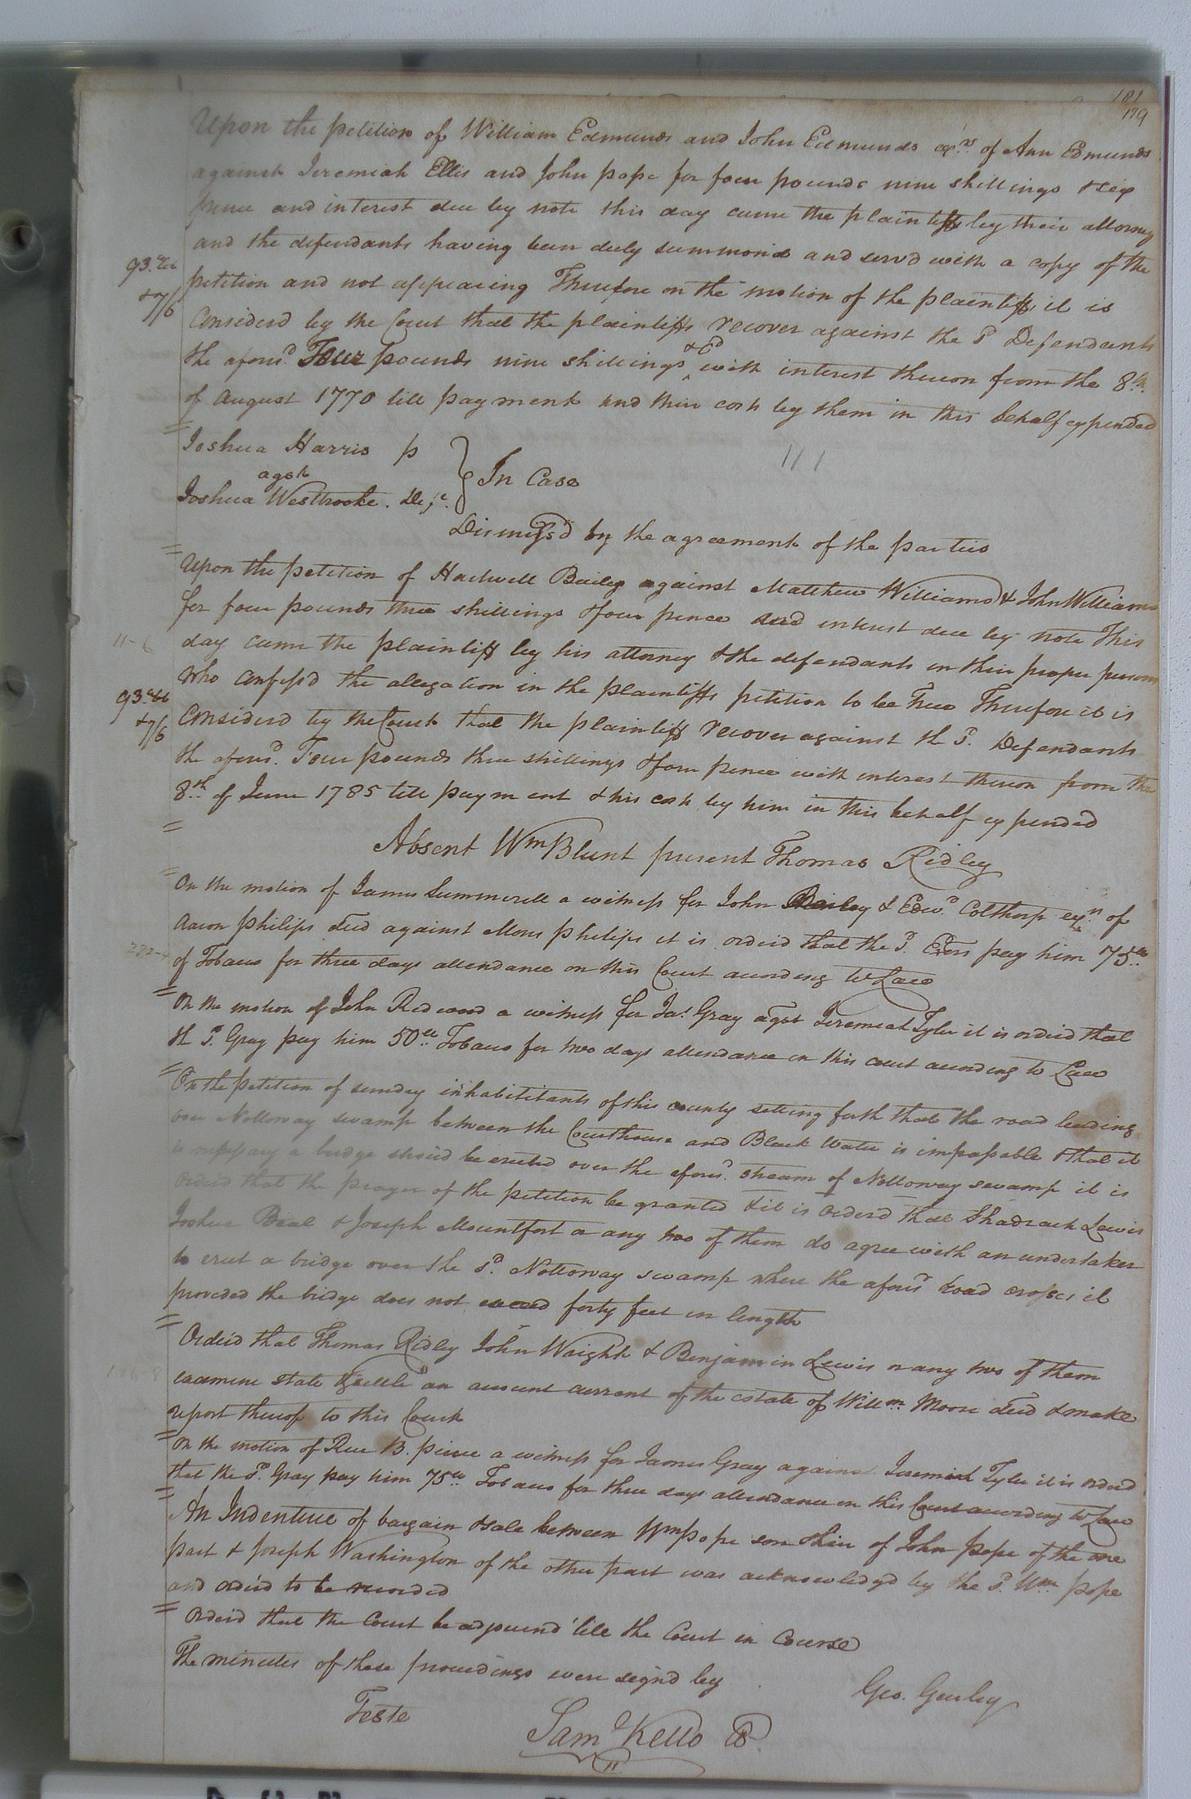 181
179
Upon the petition of William Edmunds and John Edmunds exrs of Ann Edmunds
against Jeremiah Ellis and John pope for four pounds nine shillings &
pence and interest due by note this day came the plaintiffs by their attorney
and the defendants having been duly summon'd and serv'd with a copy of the
93. &
petition and not appearing Therefore on the motion of the plaintiffs it is
+7/6
Considerd by the Court that the plaintiffs recover against the sd Defendants
the aforesd Four pounds nine shillings &cd with interest thereon from the 8th
of August 1770 till payment and their costs by them in this behalf expended
Joshua Harris p
agst
Joshua Westbrooke. Def.
In Case
111
Dismiss'd by the agreement of the parties
Upon the petition of Hartwell Bailey against Matthew Williams & John Williams
for four pounds three shillings & four pence and interest due by note This
11-6
day came the plaintiff by his attorney & the defendants in their proper persons
who confess'd the allegation in the plaintiffs petition to be True Therefore it is
93.
+7/6
Considerd by the Court that the plaintiff recover against th sd. Defendants
the aforesd. Four pounds three shillings & four pence with interest thereon from the
8th of June 1785 till payment & his costs by him in this behalf expended
Absent Wm Blunt present Thomas Ridley
On the motion of James Summerell a witness for John Bailey & Edwd Colthorp exrs of
Aaron Philips decd against Moms philips it is orderd that the sd Exors pay him 75
of Tobacco for three days attendance on this Court according to Law
On the motion of John Redwood a witness for Jas Gray agst Jeremiah Tyler it is orderd that
th sd. Gray pay him 50 Tobacco for two days attendance on this court according to Law
On the petition of sunday inhabititants of this county setting forth that the road leading
over Nottoway swamp between the Courthouse and Black Water is impassable & that it
is necessary a bridge should be erected over the aforesd stream of Nottoway swamp it is
orderd that the prayer of the petition be granted & it is Orderd that Shadrack Lewis
Joshua Beal & Joseph Mountfort or any two of them do agree with an undertaker
to erect a bridge over the sd Nottoway swamp where the aforesd road crosses it
provided the bridge does not exceed forty feet in length
Orderd that Thomas Ridley John Waight & Benjamin Lewis or any two of them
examine state & settle an account current of the estate of Willm. Moore decd & make
report thereof to this Court
On the motion of Rice B. pierce a witness for James Gray against Jeremiah Tyler it is orderd
that the sd. Gray pay him 75 Tobacco for three days attendance on this Court according to Law
An Indenture of bargain & sale between Wm pope son & heir of John pope of the one
part & Joseph Washington of the other part was acknowledg'd by the sd. Wm pope
and orderd to be recorded
Orderd that the Court be adjournd 'till the Court in Course
The minutes of these proceedings were sign'd by
Geo. Gurley
Teste
Saml Kello